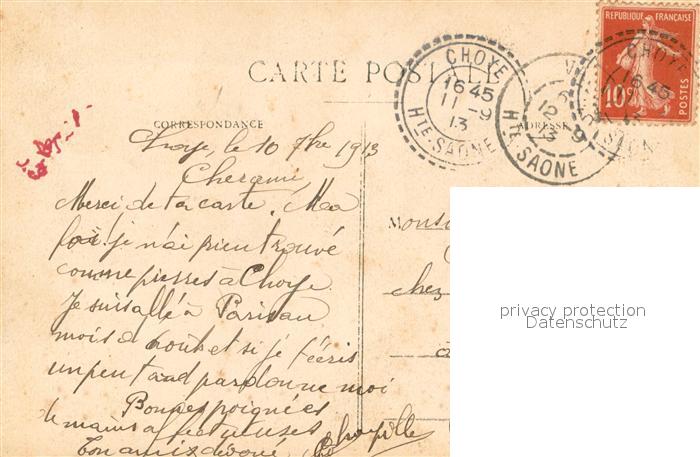 CARTE POSTALE
REPUBLIQUE FRANÇAISE
10c
POSTES
CHOYE
1645
11-9
13
Hte SAONE
CHOYE
1645
12
9
13
Hte SAONE
CORRESPONDANCE
ADRESSE
Choye, le 10 7bre 1913
Cher ami,
Merci de ta carte. Ma
foi! je n'ai rien trouvé
comme pierres à Choye
Je suis allé à Paris au
mois d'août et si je t'écris
un peu tard pardonne moi
Bonnes poignées
de mains affectueuses
Ton ami dévoué
Mons
chez
privacy protection
Datenschutz